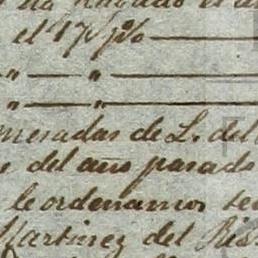 el 17 p%
" — "
" — "
mesadas de L. del
del año pasado
le ordenamos
Martinez del Rio